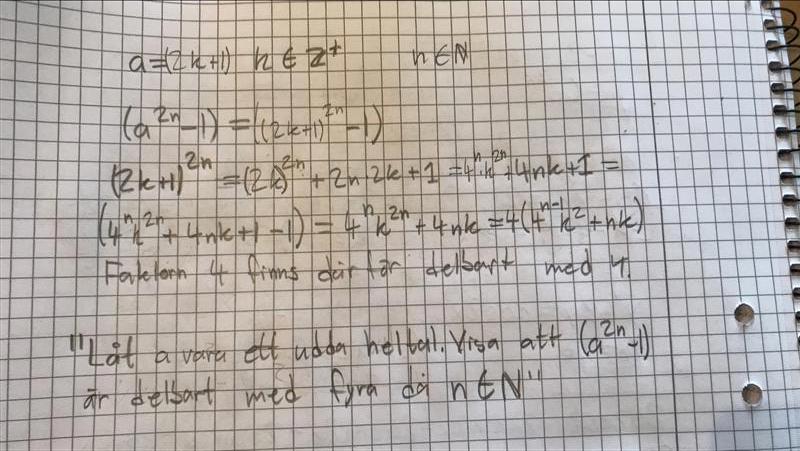 a=(2k+1) k ∈ Z⁺ n∈N
(a²ⁿ-1) = ((2k+1)²ⁿ-1)
(2k+1)²ⁿ = (2k)²ⁿ + 2n·2k + 1 = 4ⁿ·k²ⁿ + 4nk + 1 =
(4ⁿk²ⁿ + 4nk + 1 - 1) = 4ⁿk²ⁿ + 4nk = 4(4ⁿ⁻¹k² + nk)
Faktorn 4 finns därför delbart med 4.
"Låt a vara ett udda heltal. Visa att (a²ⁿ-1)
är delbart med fyra då n∈N"